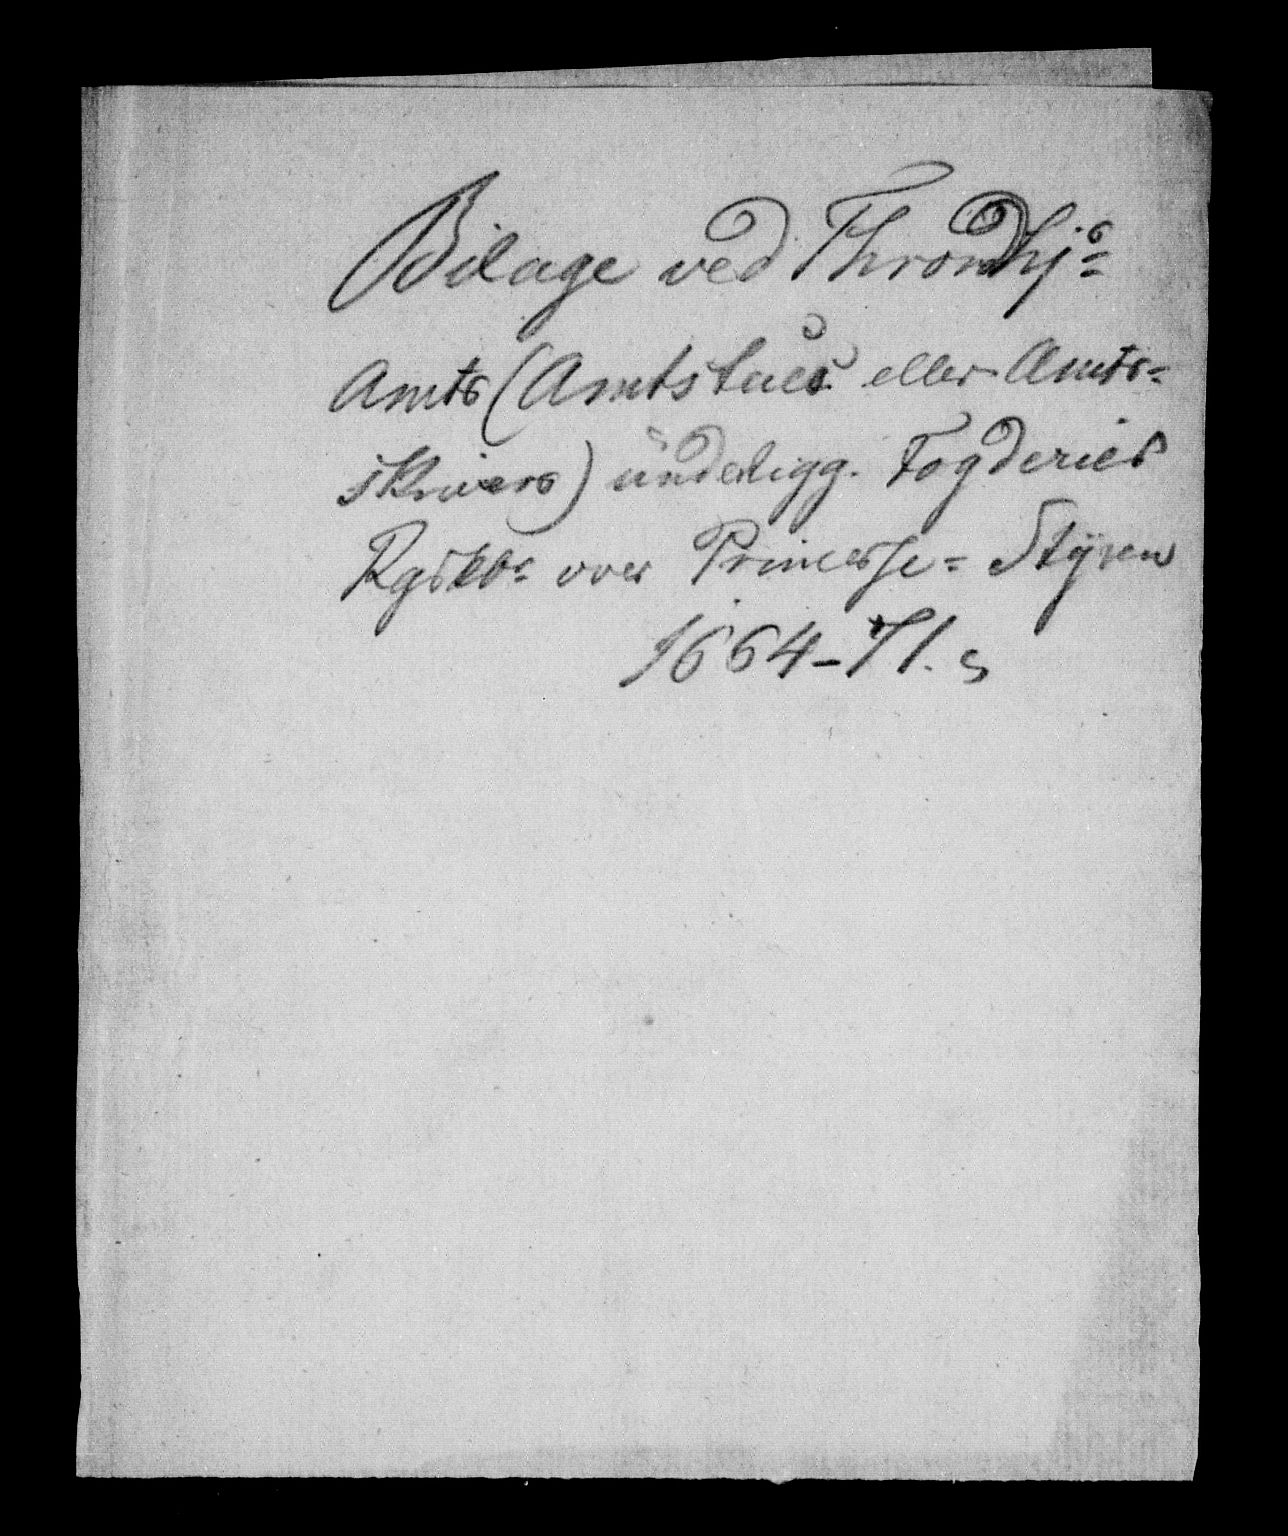 Bilage ved Throndhj=
Amts (Amtstues eller Amts=
skrivers) underligg. Fogderiers
Rgskb= over Princesse= Styren
1664-71.